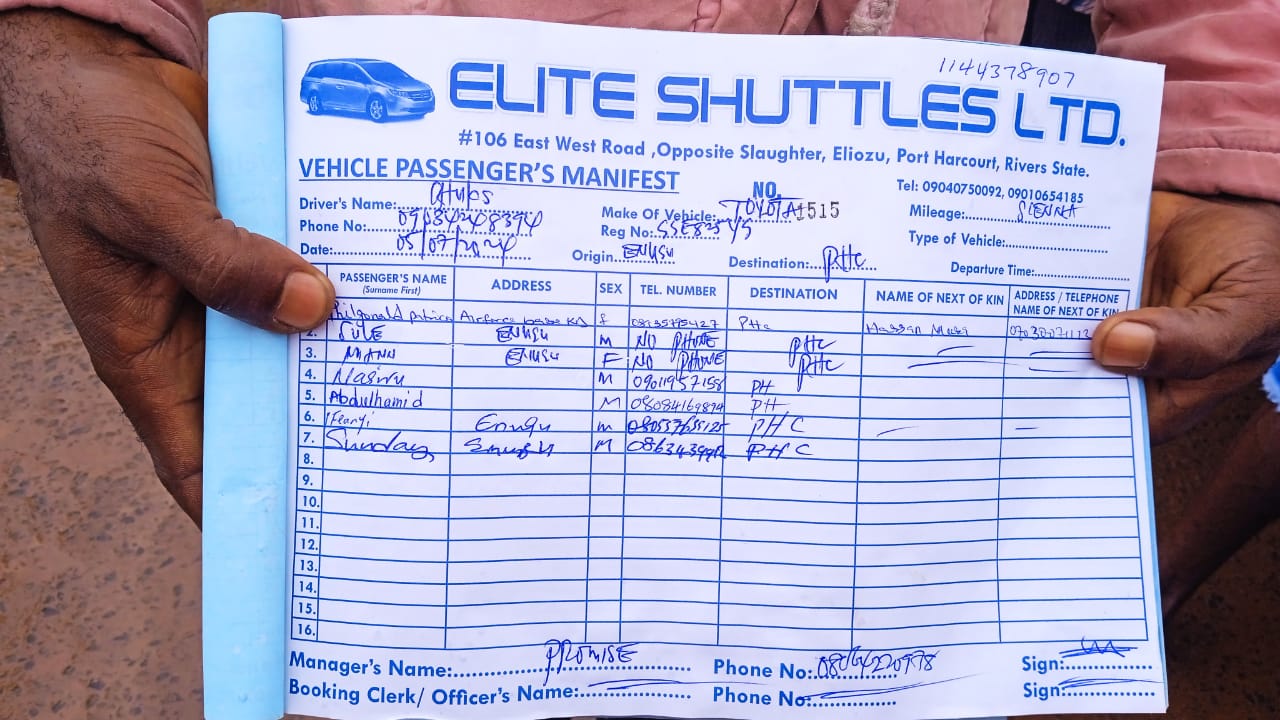 1144378907
ELITE SHUTTLES LTD.
#106 East West Road ,Opposite Slaughter, Eliozu, Port Harcourt, Rivers State.
VEHICLE PASSENGER'S MANIFEST NO. 1515 Tel: 09040750092, 09010654185
Driver's Name: Make Of Vehicle: TOYOTA Mileage: SIENNA
Phone No: Reg No: Type of Vehicle:
Date: 05/07/2024 Origin: ENUGU Destination: PHC Departure Time:
PASSENGER'S NAME (Surname First) ADDRESS SEX TEL. NUMBER DESTINATION NAME OF NEXT OF KIN ADDRESS / TELEPHONE NAME OF NEXT OF KIN
Airforce base f PHC Hassan
2. SULE ENUGU M NO PHONE PHC
3. ENUGU F NO PHONE PHC
4. M 09011957158 PH
5. Abdulhamid M PH
6. Ifeanyi Enugu m PHC
7. Sunday M PHC
8.
9.
10.
11.
12.
13.
14.
15.
16.
Manager's Name: PROMISE Phone No: Sign:
Booking Clerk/ Officer's Name: Phone No: Sign: